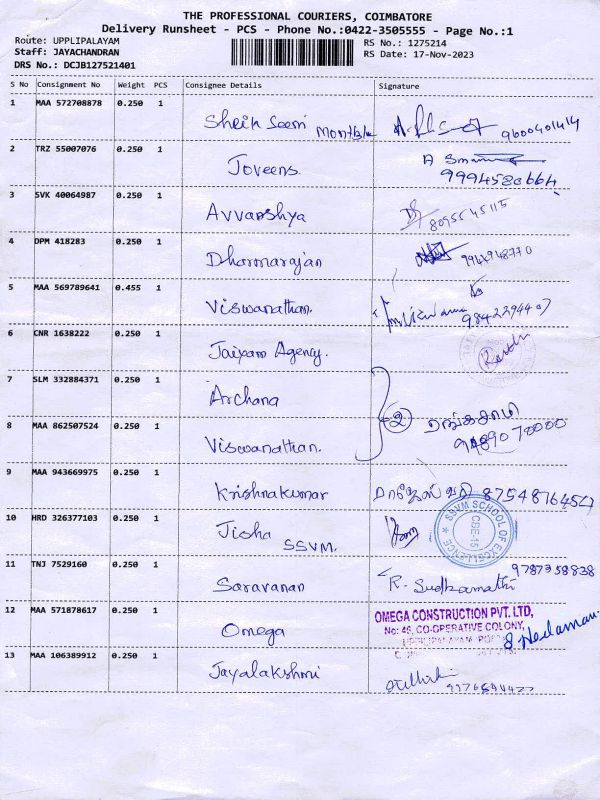 THE PROFESSIONAL COURIERS, COIMBATORE
Delivery Runsheet - PCS - Phone No.:0422-3505555 - Page No.:1
Route: UPPLIPALAYAM RS No.: 1275214
Staff: JAYACHANDRAN RS Date: 17-Nov-2023
DRS No.: DCJB127521401
S No Consignment No Weight PCS Consignee Details Signature
1 MAA 572708878 0.250 1
Sheik Seeni 9600401414
2 TRZ 55007076 0.250 1
Joveens. 9994580664
3 SVK 40064987 0.250 1
Avvanshya 8095545115
4 DPM 418283 0.250 1
Dharmarajan
5 MAA 569789641 0.455 1
Viswanathan.
6 CNR 1638222 0.250 1
Jaiyam Agency.
7 SLM 332884371 0.250 1
Archana
2
8 MAA 862507524 0.250 1
Viswanathan.
9489070000
9 MAA 943669975 0.250 1
Krishnakumar
10 HRD 326377103 0.250 1
Jisha
SSVM.
SSVM SCHOOL OF EXCELLENCE
CBE-15
11 TNJ 7529160 0.250 1
9787358838
Saravanan
12 MAA 571878617 0.250 1
OMEGA CONSTRUCTION PVT. LTD,
No: 46, CO-OPERATIVE COLONY,
Omega
13 MAA 106389912 0.250 1
Jayalakshmi